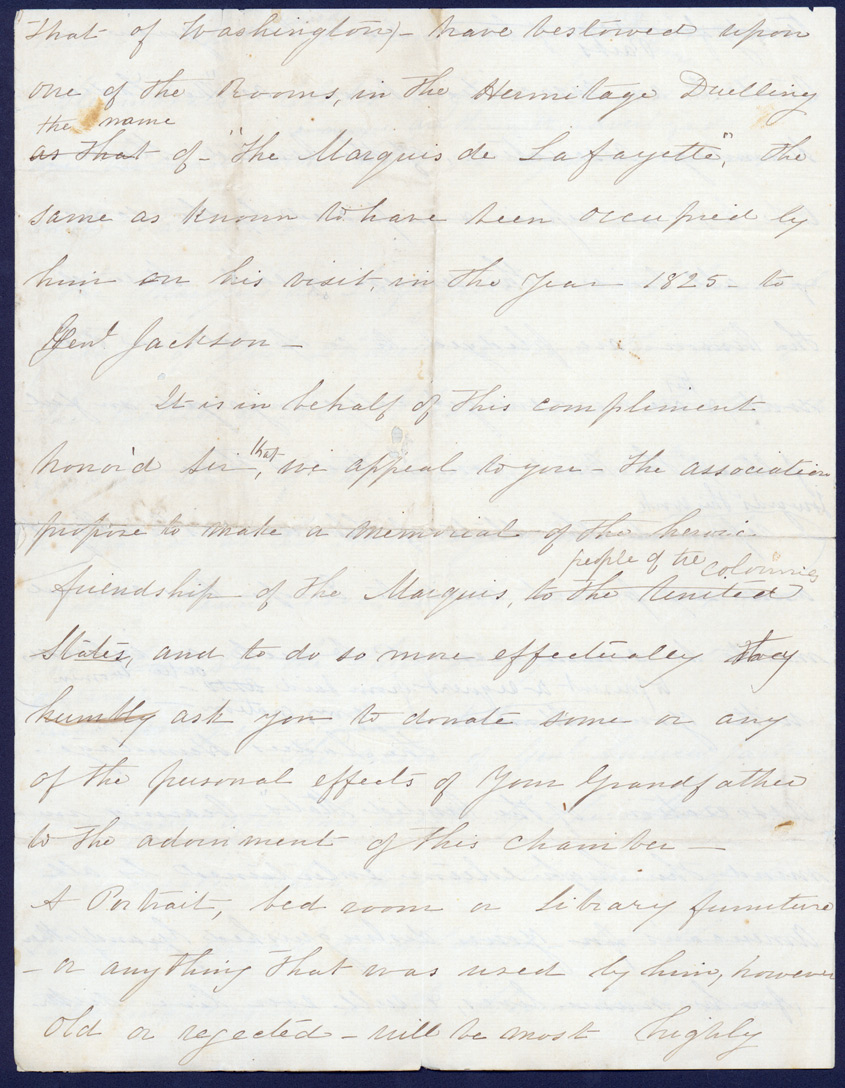 that of Washington) - have bestowed upon
one of the Rooms, in the Hermitage Dwelling
the name
as that of - "the Marquis de Lafayette", the
same as known to have been occupied by
him on his visit, in the Year 1825 - to
Genl Jackson -
It is in behalf of this compliment
that
honor'd Sir, we appeal to you - the association
propose to make a memorial of the heroic
people of the colonies
friendship of the Marquis, to the United
States, and to do so more effectually they
humbly ask you to donate some or any
of the personal effects of Your Grandfather
to the adornment of this chamber -
A Portrait, bed room or Library furniture
- or anything that was used by him, however
old or rejected - will be most highly